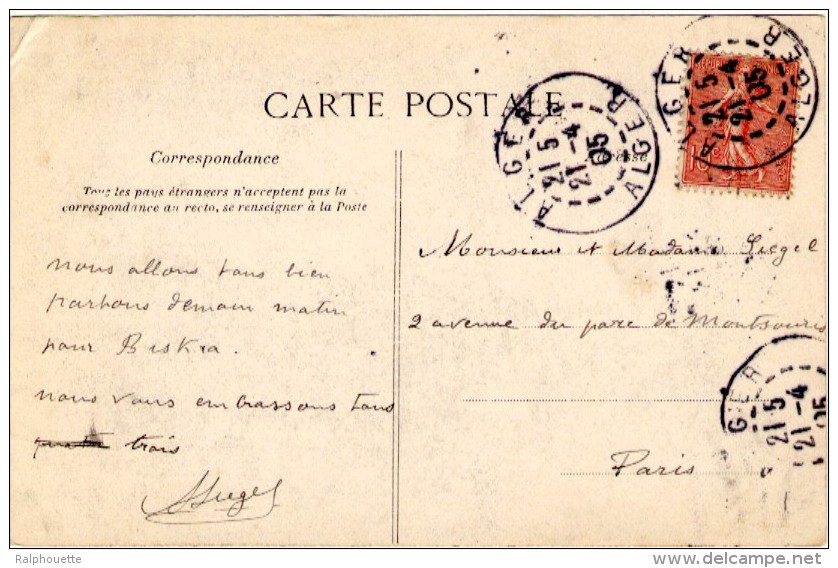 CARTE POSTALE
Correspondance
Tous les pays étrangers n'acceptent pas la
correspondance au recto, se renseigner à la Poste
nous allons tous bien
partons demain matin
pour Biskra.
nous vous embrassons tous
trois
Siegel
Adresse
Monsieur et Madame Siegel
2 avenue du parc de Montsouris
Paris
ALGER
21 5
21 -4
05
ALGER
ALGER
21 5
21 -4
05
ALGER
GER
21 5
21 -4
05
Ralphouette
www.delcampe.net